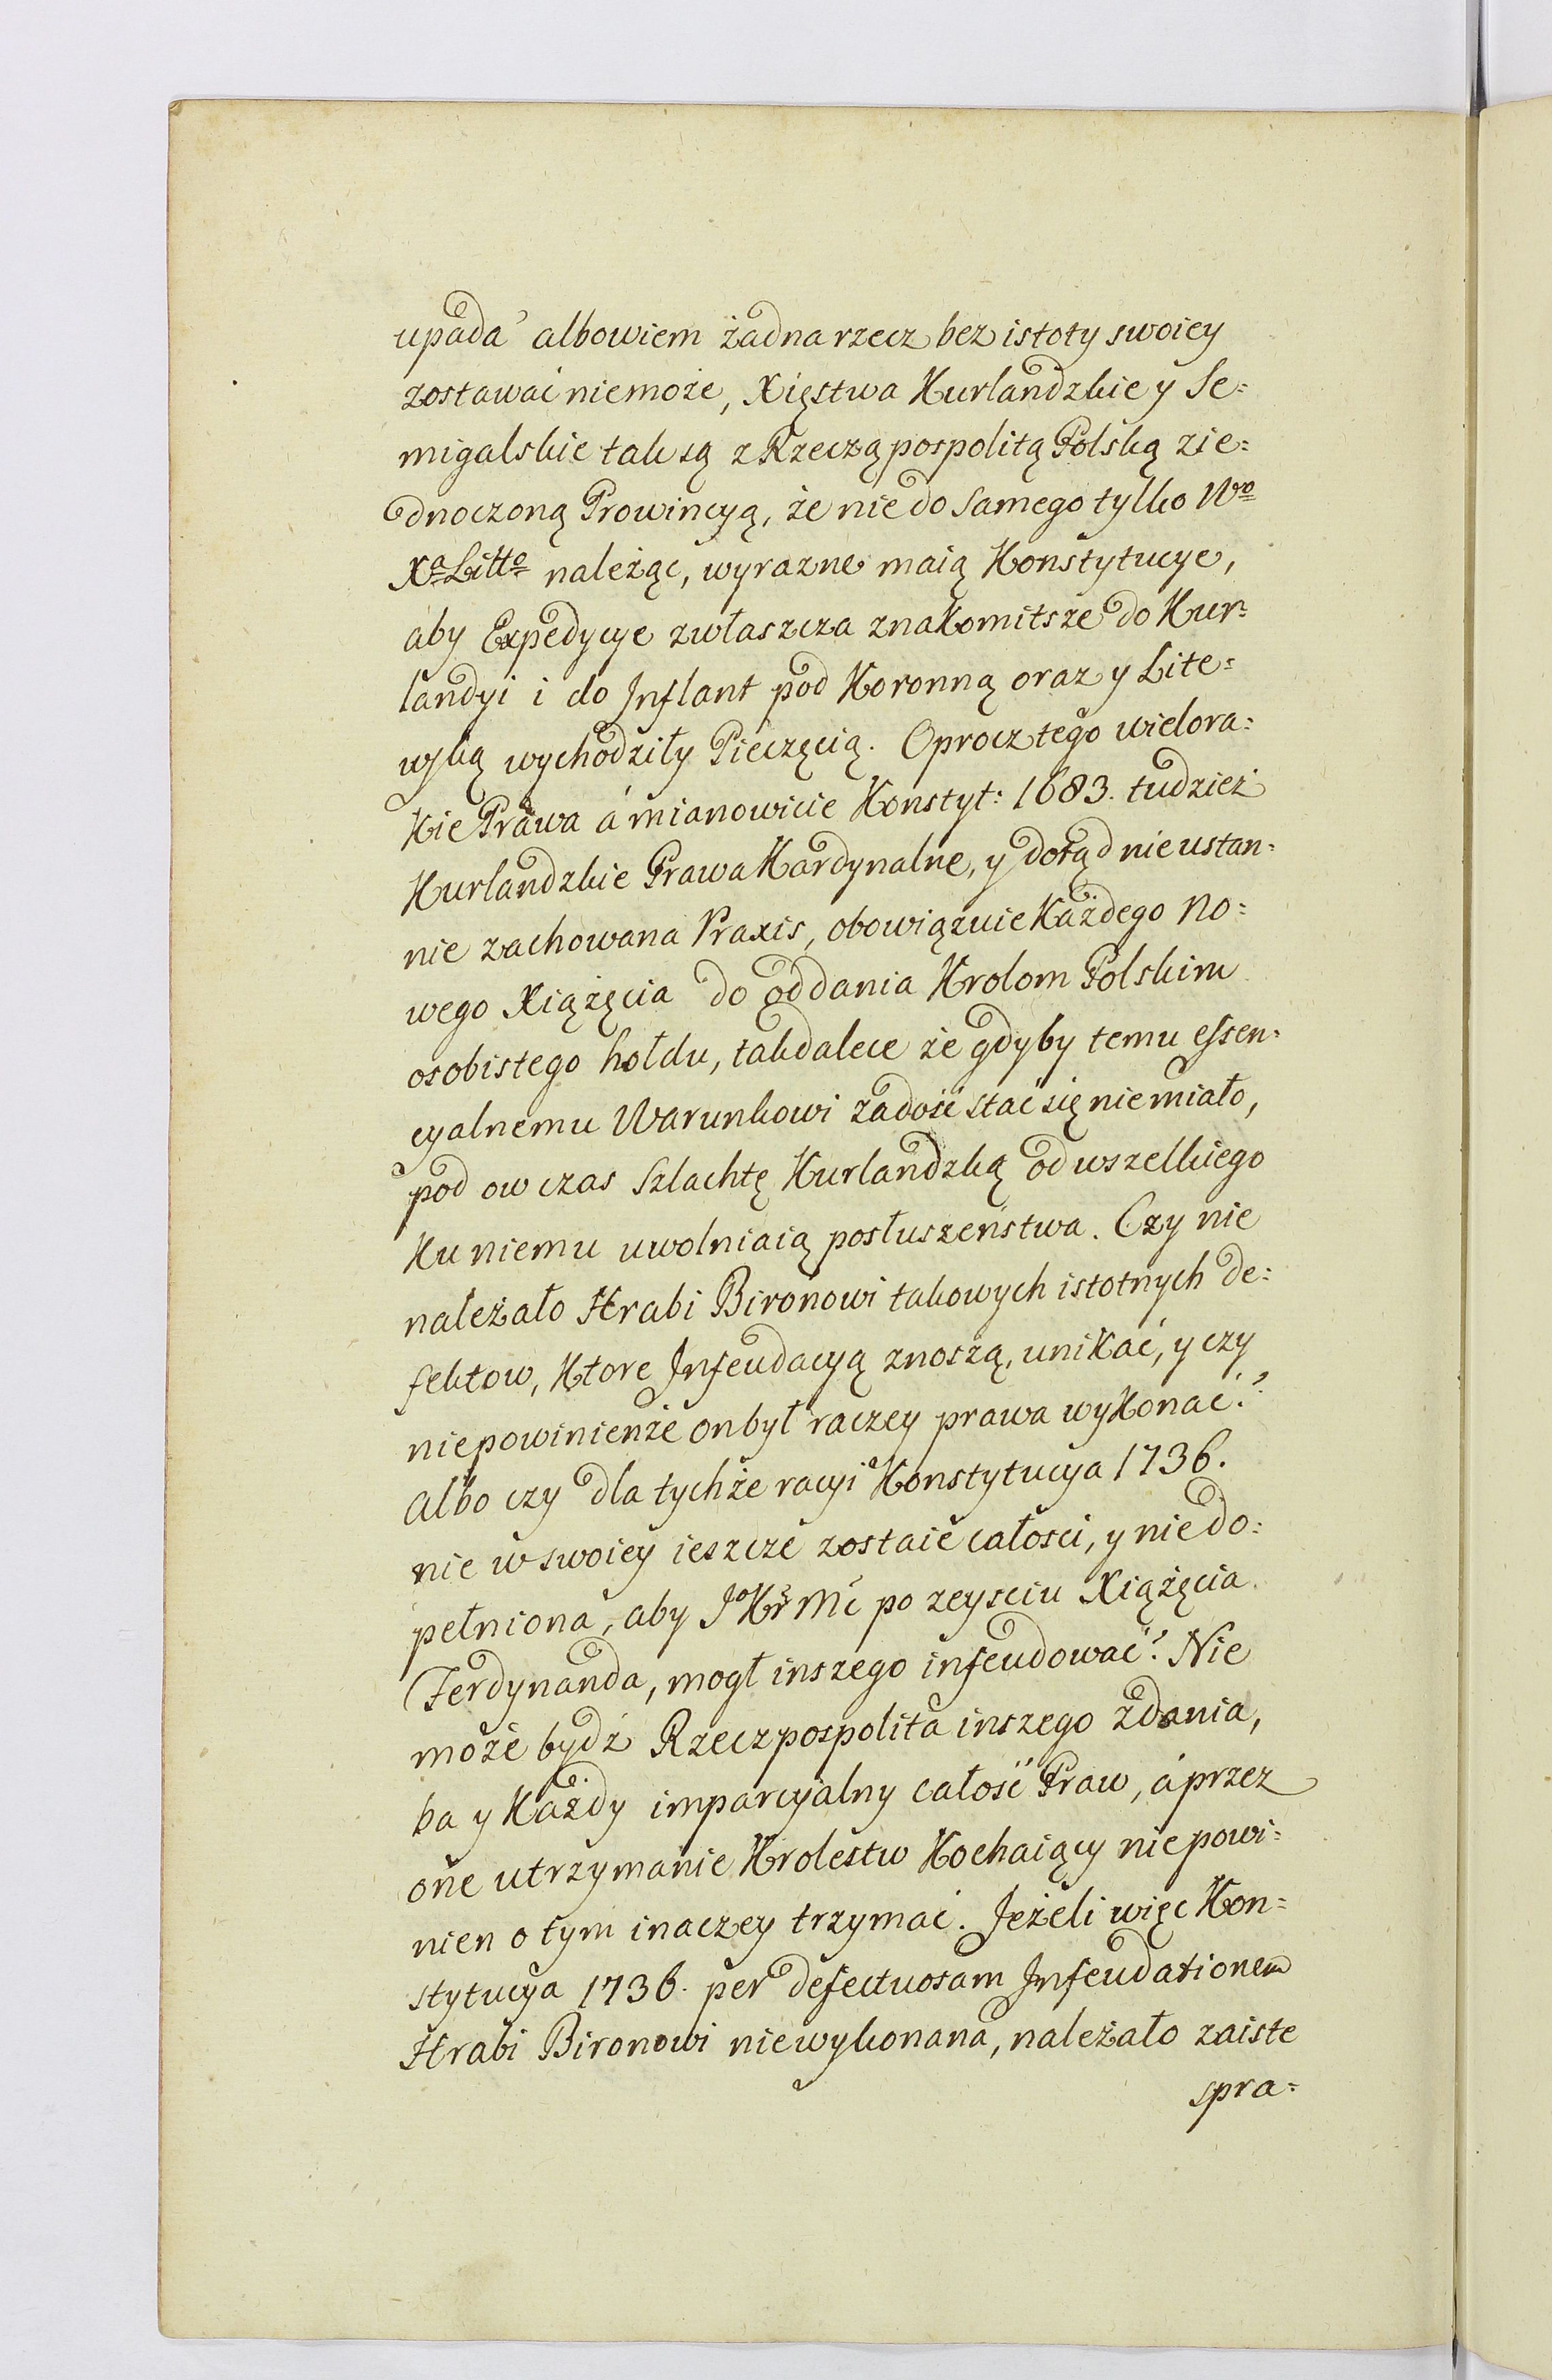 upada albowiem żadna rzecz bez istoty swoiey
zostawać niemoże, Xięstwa Kurlandzkie y Se=
migalskie tak są z Rzecząpospolitą Polską zie=
dnoczoną Prowincyą, że nie do samego tylko Wo
Xa Litto należąc, wyrazne maią Konstytucye,
aby Expedycye zwłaszcza znakomitsze do Kur=
landyi i do Inflant pod Koronną oraz y Lite=
wską wychodziły Pieczęcią. Oprocz tego wielora=
kie Prawa á mianowicie Konstyt: 1683. tudzież
Kurlandzkie Prawa Kardynalne, y dotąd nieustan=
nie zachowana Praxis, obowiązuie każdego no=
wego Xiążęcia do oddania Krolom Polskim
osobistego hołdu, takdalece że gdyby temu essen=
cyalnemu Warunkowi zadość stać się niemiało,
pod ow czas Szlachtę Kurlandzką od wszelkiego
ku niemu uwolniaią posłuszeństwa. Czy nie
należało Hrabi Bironowi takowych istotnych de=
fektow, ktore Infeudacyą znoszą, unikać, y czy
niepowinienże on był raczey prawa wykonać?
Albo czy dla tychże racyi Konstytucya 1736.
nie w swoiey ieszcze zostaie całosci, y niedo=
pełniona, aby Jo Kr Mć po zeysciu Xiążęcia
Ferdynanda, mogł inszego infeudować? Nie
może bydź Rzeczpospolita inszego zdania,
ba y każdy imparcyalny całość Praw, á przez
one utrzymanie Krolestw kochaiący niepowi=
nien o tym inaczey trzymać. Jeżeli więc Kon=
stytucya 1736. per defectuosam Infeudationem
Hrabi Bironowi niewykonana, należało zaiste
spra=